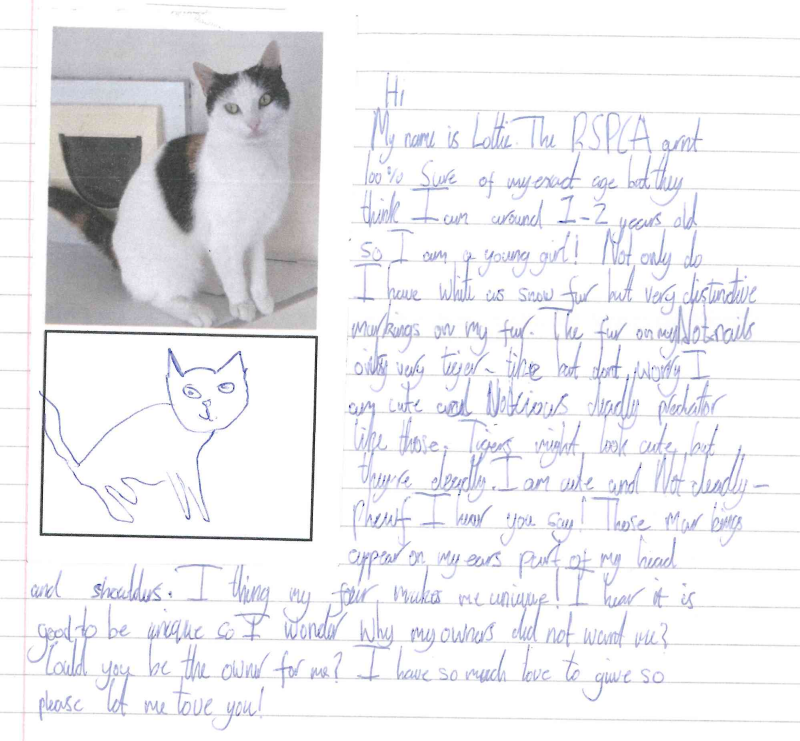 Hi
My name is Lottie. The RSPCA arnt
100% Sure of my exact age but they
think I am around 1-2 years old
so I am a young girl! Not only do
I have white as snow fur but very distinctive
markings on my fur. The fur on my
very tiger-like but dont worry I
am cute and deadly predator
like those. Tigers might look cute but
they're deadly. I am cute and Not deadly-
phewf I hear you say! Those markings
appear on my ears part of my head
and shoulders. I thing my makes me unique! I hear it is
good to be unique so I wonder why my owners did not want me?
Could you be the owner for me? I have so much love to give so
please let me love you!